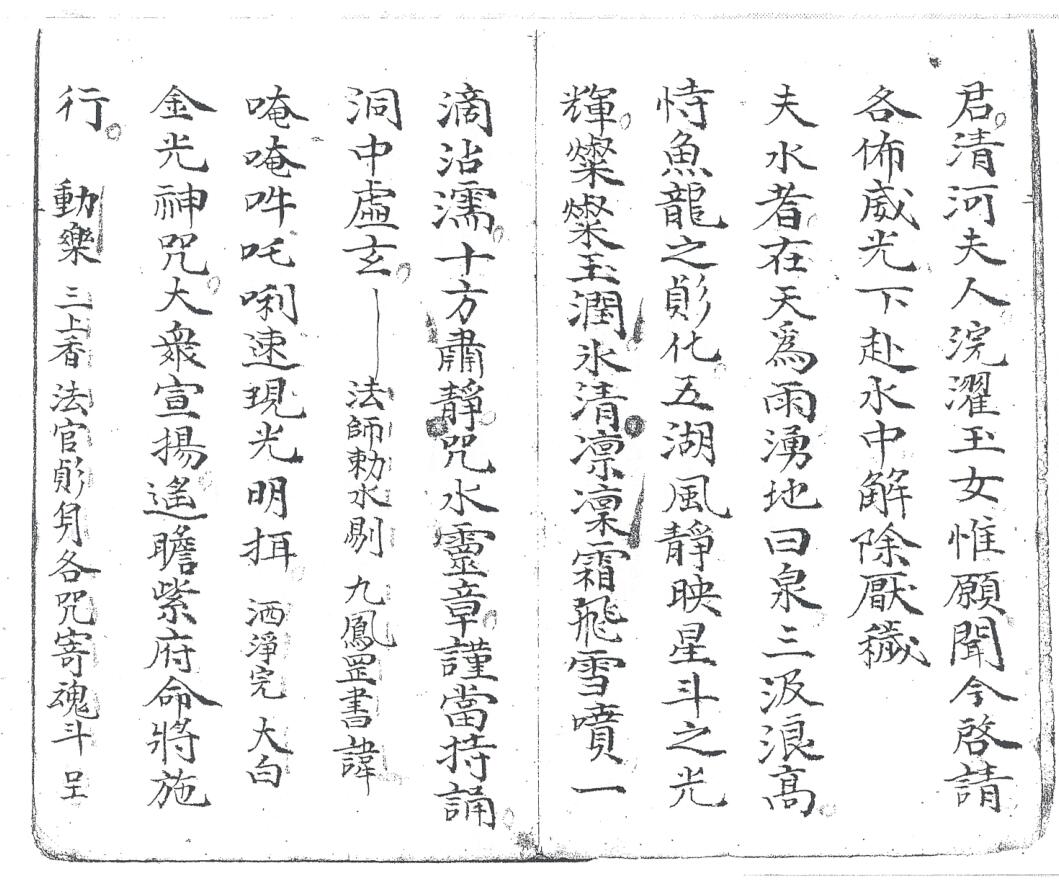 君清河夫人浣濯玉女惟願聞今啓請
各佈威光下赴水中解除厭穢
夫水者在天爲雨湧地曰泉三汲浪高
恃魚龍之変化五湖風靜映星斗之光
輝燦燦玉潤氷清凛凛霜飛雪噴一
滴沾濡十方肅靜咒水靈章謹當持誦
洞中虛玄 法師勅水剔 九鳳罡書諱
唵唵吽吒唎速現光明挕 洒淨完 大白
金光神咒大衆宣揚遙瞻紫府命將施
行 動樂 三上香法官変身各咒寄魂斗呈